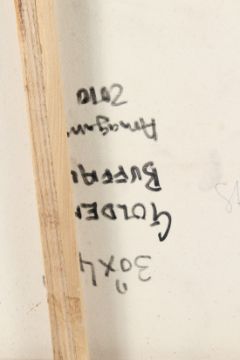 30"X4
GOLDEN
BUFFAL
Amagan
2010